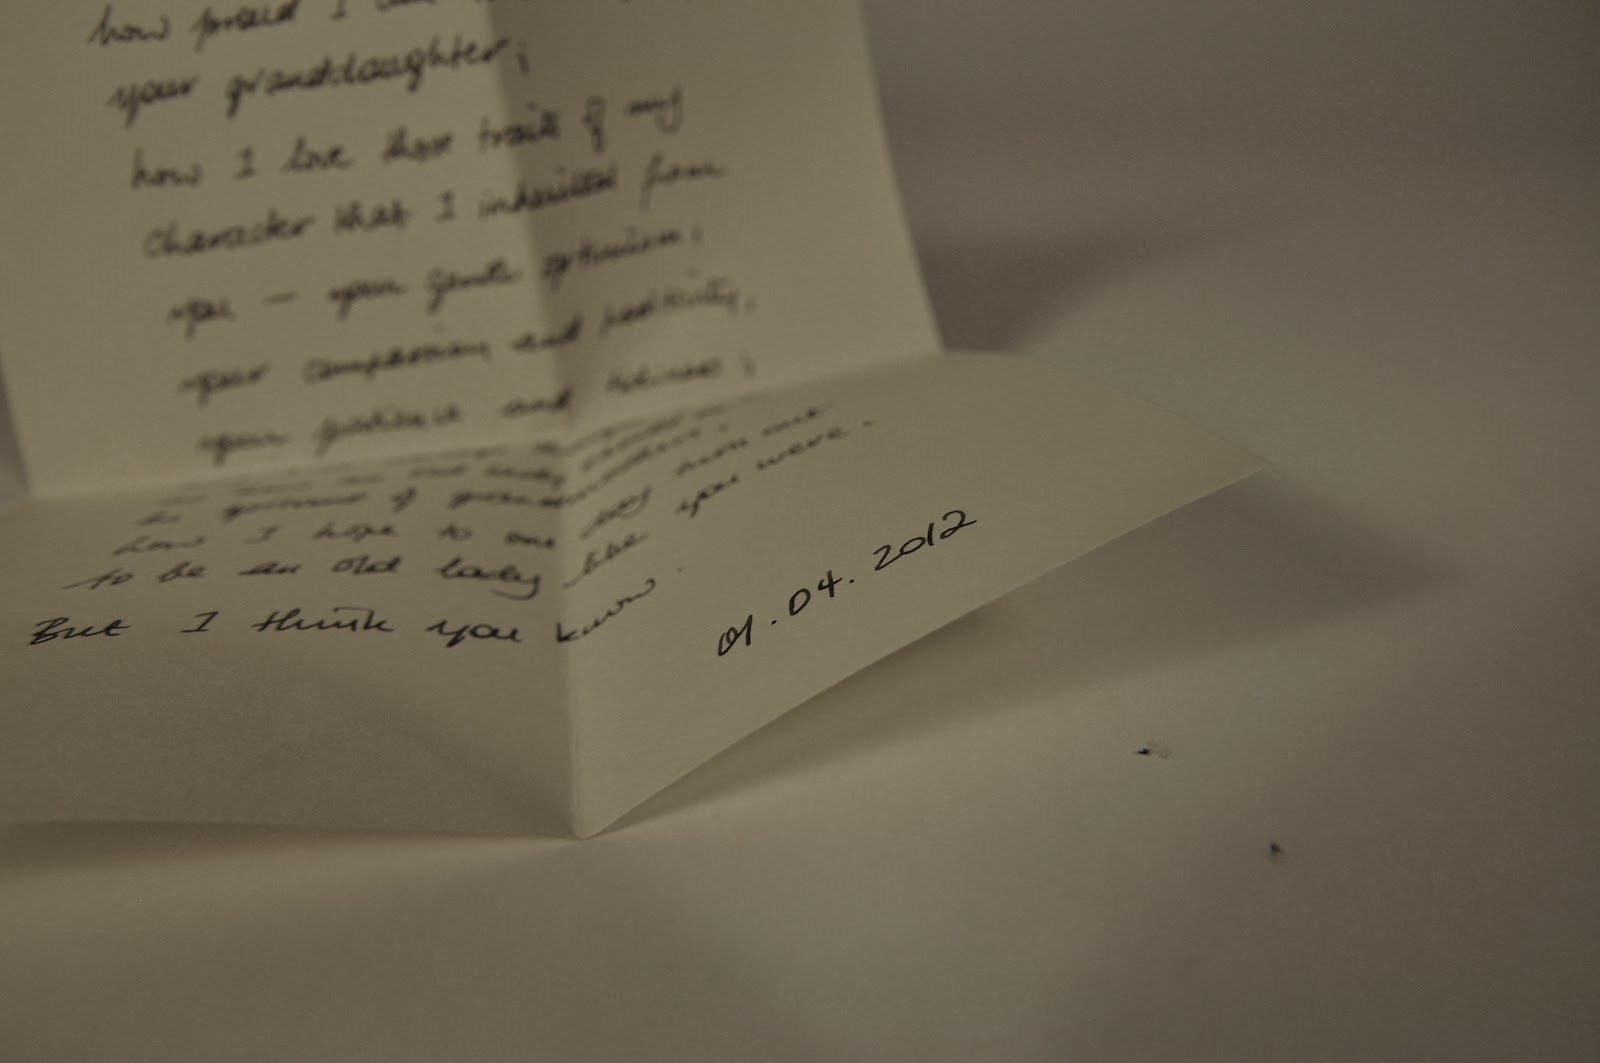 how proud I
your granddaughter;
how I love those traits of my
character that I inherited from
you — your gentle optimism,
your compassion and positivity,
your patience and
how I hope to one day turn out
to be an old lady like you were.
But I think you know.
01.04.2012